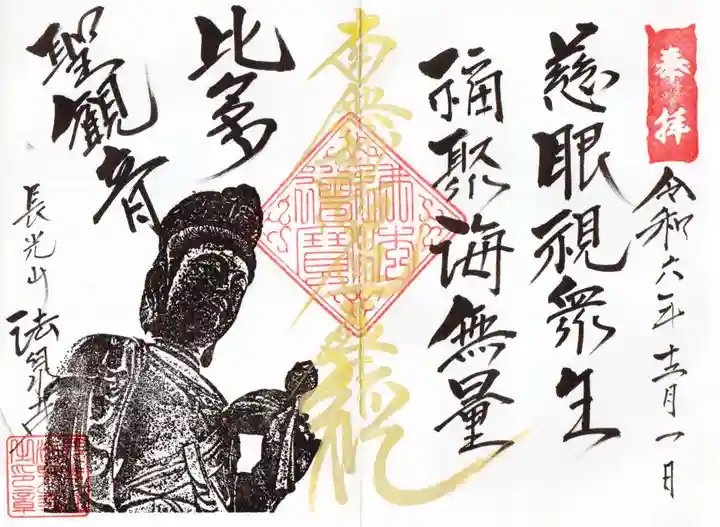 奉拝
令和六年十二月一日
慈眼視衆生
福聚海無量
南無
比企
聖観音
長光山
法泉寺
佛法僧寶